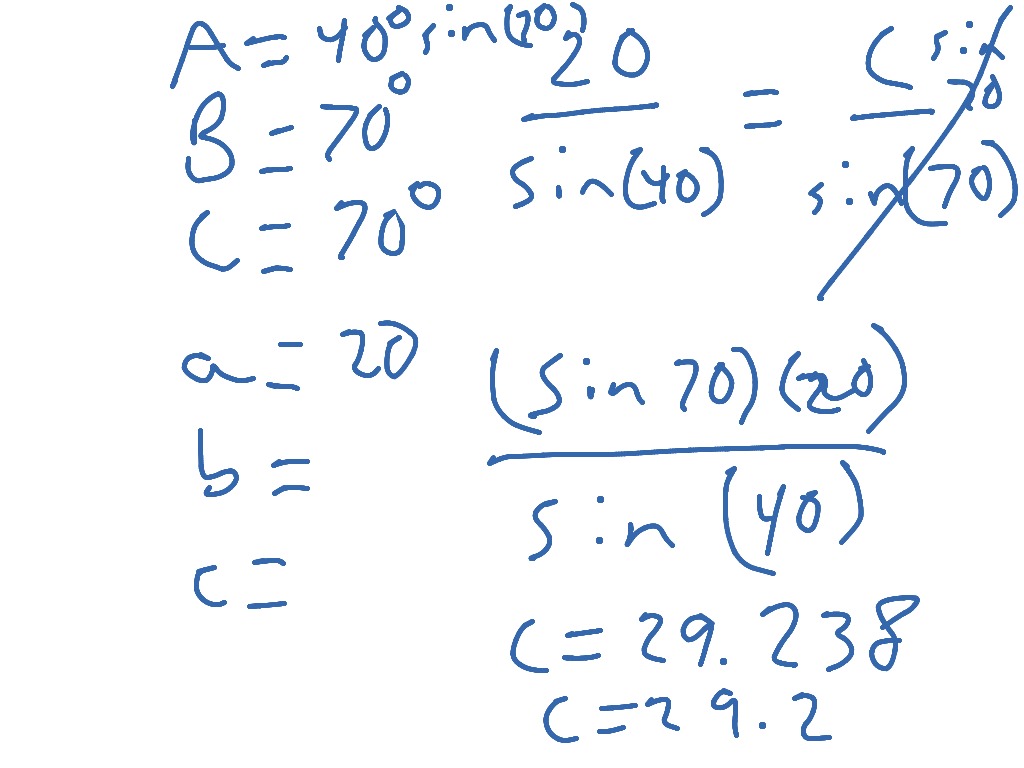 A = 40°
B = 70°
C = 70°
a = 20
b =
c =
sin(70) 20 / sin(40) = C sin 70 / sin(70)
(sin 70)(20) / sin(40)
C = 29.238
C = 29.2